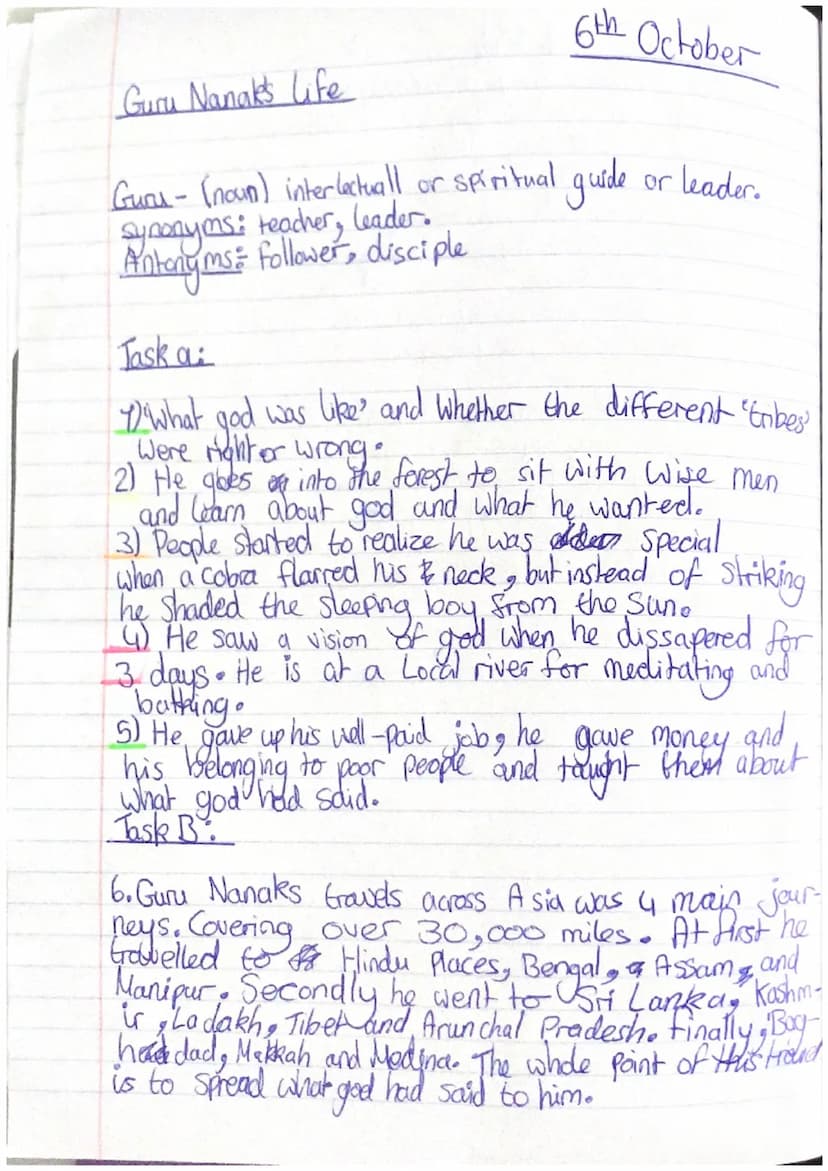 6th October
Guru Nanak's Life
Guru - (noun) interlectuall or spiritual guide or leader.
synonyms: teacher, leader.
Antonyms: follower, disciple
Task a:
1) 'What god was like' and whether the different 'tribes'
were right or wrong.
2) He goes into the forest to sit with wise men
and learn about god and what he wanted.
3) People started to realize he was special
when a cobra flarred his neck, but instead of striking
he shaded the sleeping boy from the sun.
4) He saw a vision of god when he dissapered for
3 days. He is at a local river for meditating and
bathing.
5) He gave up his well-paid job, he gave money and
his belonging to poor people and taught them about
what god had said.
Task B:
6. Guru Nanaks travels across Asia was 4 main jour-
neys. Covering over 30,000 miles. At first he
travelled to Hindu Places, Bengal, Assam, and
Manipur. Secondly he went to Sri Lanka, Kashm-
ir, Ladakh, Tibet and Arunchal Pradesh. Finally, Bag-
hdad, Makkah and Medina. The whole point of this
is to spread what god had said to him.